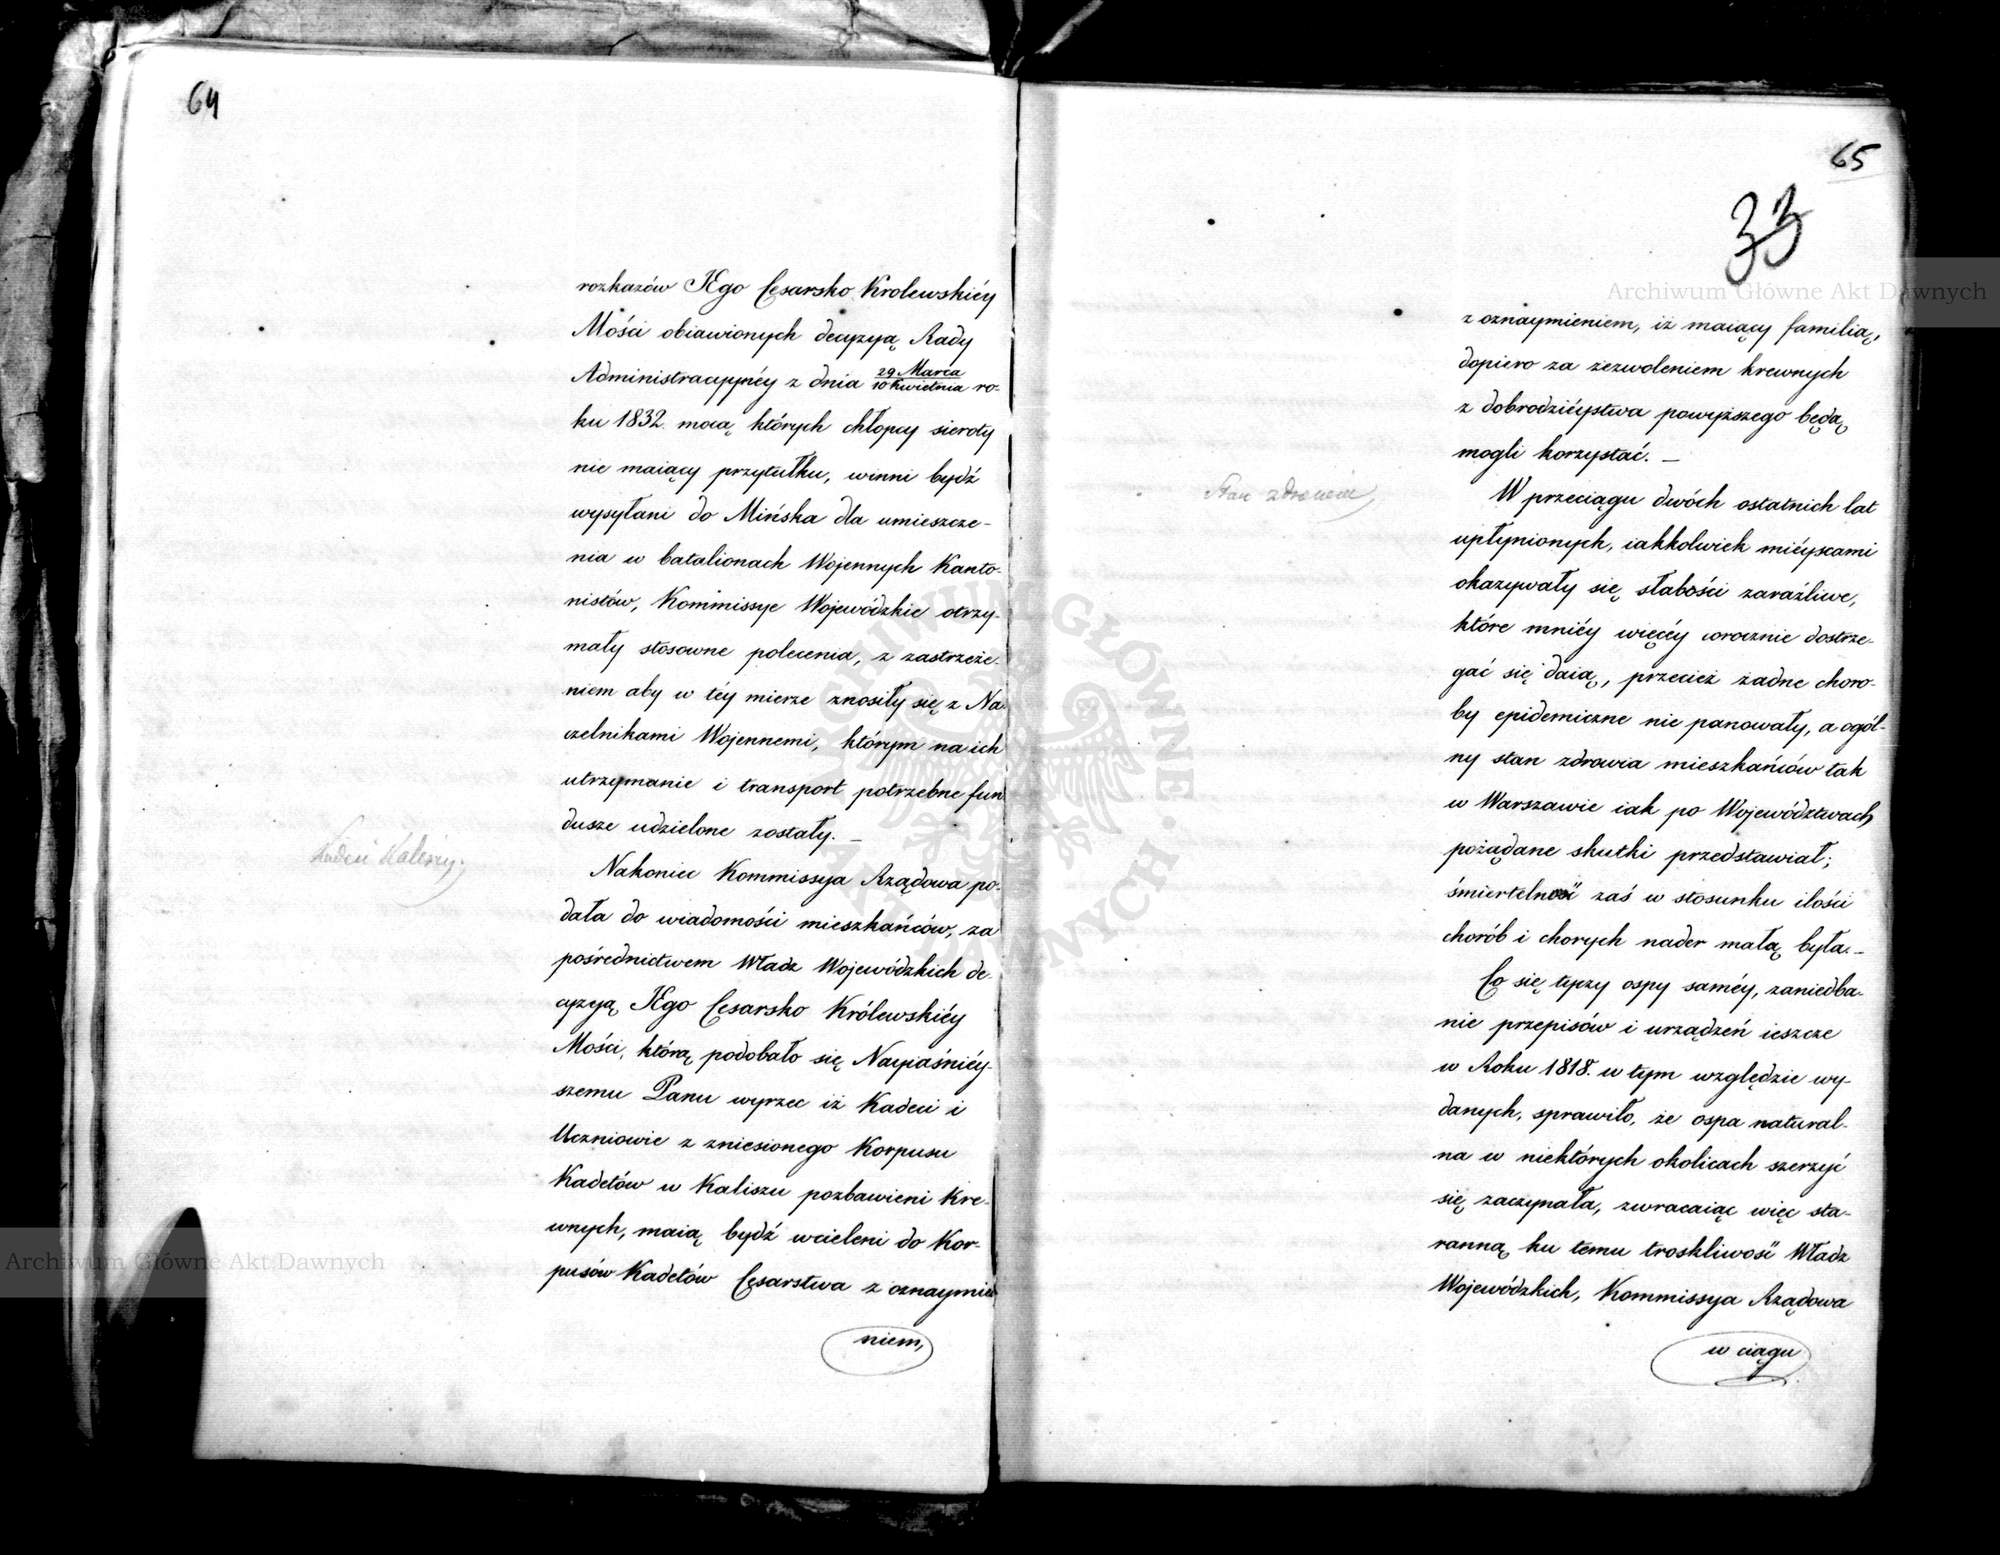 64
rozkazów JEgo Cesarsko Krolewskiéy
Mości obiawionych decyzyą Rady
Administracyynéy z dnia 29 Marca / 10 Kwietnia ro-
ku 1832. mocą których chłopcy sieroty
nie maiący przytułku, winni bydź
wysyłani do Mińska dla umieszcze-
nia w batalionach Wojennych Kanto-
nistów, Kommissye Wojewódzkie otrzy-
mały stosowne polecenia, z zastrzeże-
niem aby w téy mierze znosiły się z Na-
czelnikami Wojennemi, którym na ich
utrzymanie i transport potrzebne fun-
dusze udzielone zostały. –
Kadeci Kaliscy.
Nakoniec Kommissya Rządowa po-
dała do wiadomości mieszkańców, za
pośrednictwem Władz Wojewódzkich de-
cyzyą JEgo Cesarsko Królewskiéy
Mości, którą podobało się Nayiaśniéy-
szemu Panu wyrzec iż Kadeci i
Uczniowie z zniesionego Korpusu
Kadetów w Kaliszu pozbawieni Kre-
wnych, maią bydź wcieleni do Kor-
pusów Kadetów Cesarstwa z oznaymie
niem,
65
33
z oznaymieniem, iż maiący familią,
dopiero za zezwoleniem krewnych
z dobrodzieystwa powyższego będą
mogli korzystać. –
Stan zdrowia
W przeciągu dwóch ostatnich lat
upłynionych, iakkolwiek mieyscami
okazywały się słabości zaraźliwe,
które mniéy więcéy corocznie dostrze-
gać się daią, przecież żadne choro-
by epidemiczne nie panowały, a ogól-
ny stan zdrowia mieszkańców tak
w Warszawie iak po Województwach
pożądane skutki przedstawiał;
śmiertelność zaś w stosunku ilości
chorób i chorych nader małą była. –
Co się tyczy ospy saméy, zaniedba-
nie przepisów i urządzeń ieszcze
w Roku 1818. w tym względzie wy-
danych, sprawiło, że ospa natural-
na w niektórych okolicach szerzyć
się zaczynała, zwracaiąc więc sta-
ranną ku temu troskliwość Władz
Wojewódzkich, Kommissya Rządowa
w ciągu
Archiwum Główne Akt Dawnych
Archiwum Główne Akt Dawnych
ARCHIWUM GŁÓWNE AKT DAWNYCH